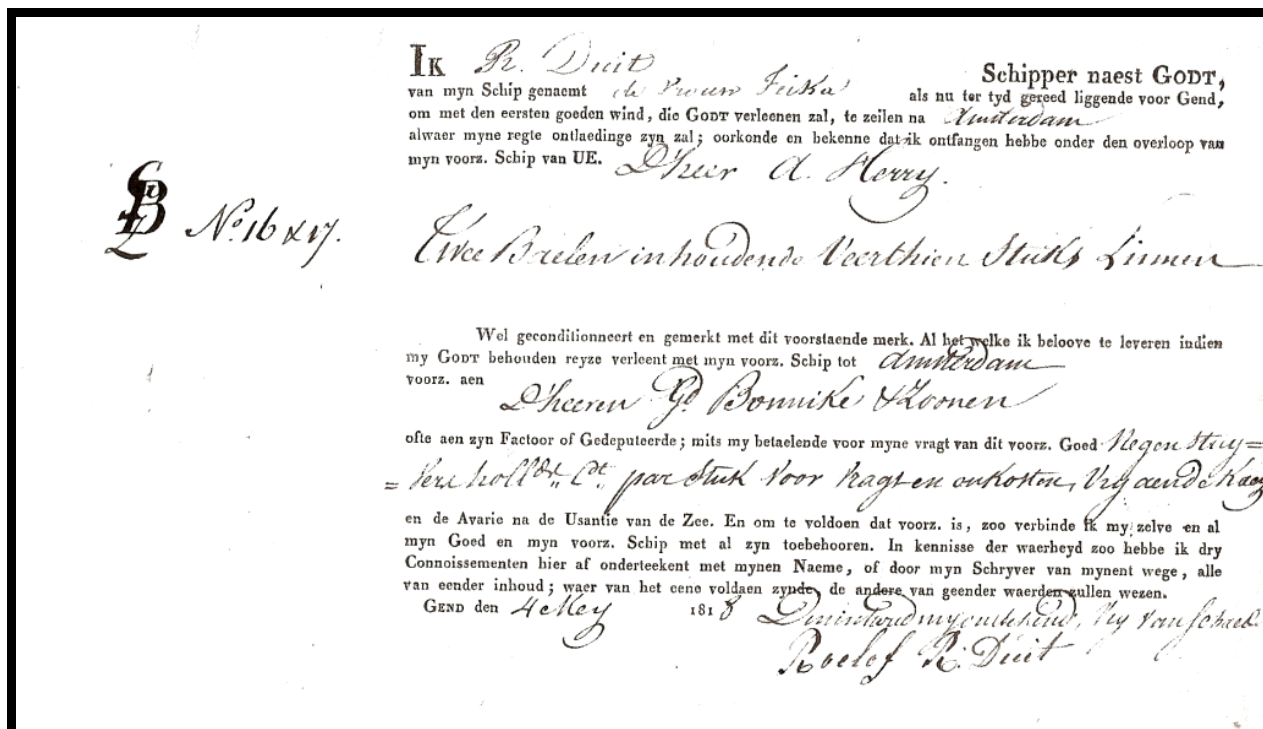 IK R. Duit Schipper naest GODT,
van myn Schip genaemt de Vrouw Feika als nu ter tyd gereed liggende voor Gend,
om met den eersten goeden wind, die GODT verleenen zal, te zeilen na Amsterdam
alwaer myne regte ontlaedinge zyn zal; oorkonde en bekenne dat ik ontfangen hebbe onder den overloop van
myn voorz. Schip van UE. D'heer A. Herry.
No. 16 & 17. Twee Baelen inhoudende Veerthien Stuks Linnen
Wel geconditionneert en gemerkt met dit voorstaende merk. Al het welke ik beloove te leveren indien
my GODT behouden reyze verleent met myn voorz. Schip tot Amsterdam
voorz. aen
D'heeren Gd. Bonnike & Zoonen
ofte aen zyn Factoor of Gedeputeerde; mits my betaelende voor myne vragt van dit voorz. Goed Negen Stuy=
=vers holl. Ct. par Stuk voor vragt en onkosten, Vry aen de Kaey
en de Avarie na de Usantie van de Zee. En om te voldoen dat voorz. is, zoo verbinde ik my zelve en al
myn Goed en myn voorz. Schip met al zyn toebehooren. In kennisse der waerheyd zoo hebbe ik dry
Connoissementen hier af onderteekent met mynen Naeme, of door myn Schryver van mynent wege, alle
van eender inhoud; waer van het eene voldaen zynde, de andere van geender waerden zullen wezen.
GEND den 4 Mey 1818 Den inhoud my onbekend, Vry van
Roelof R. Duit